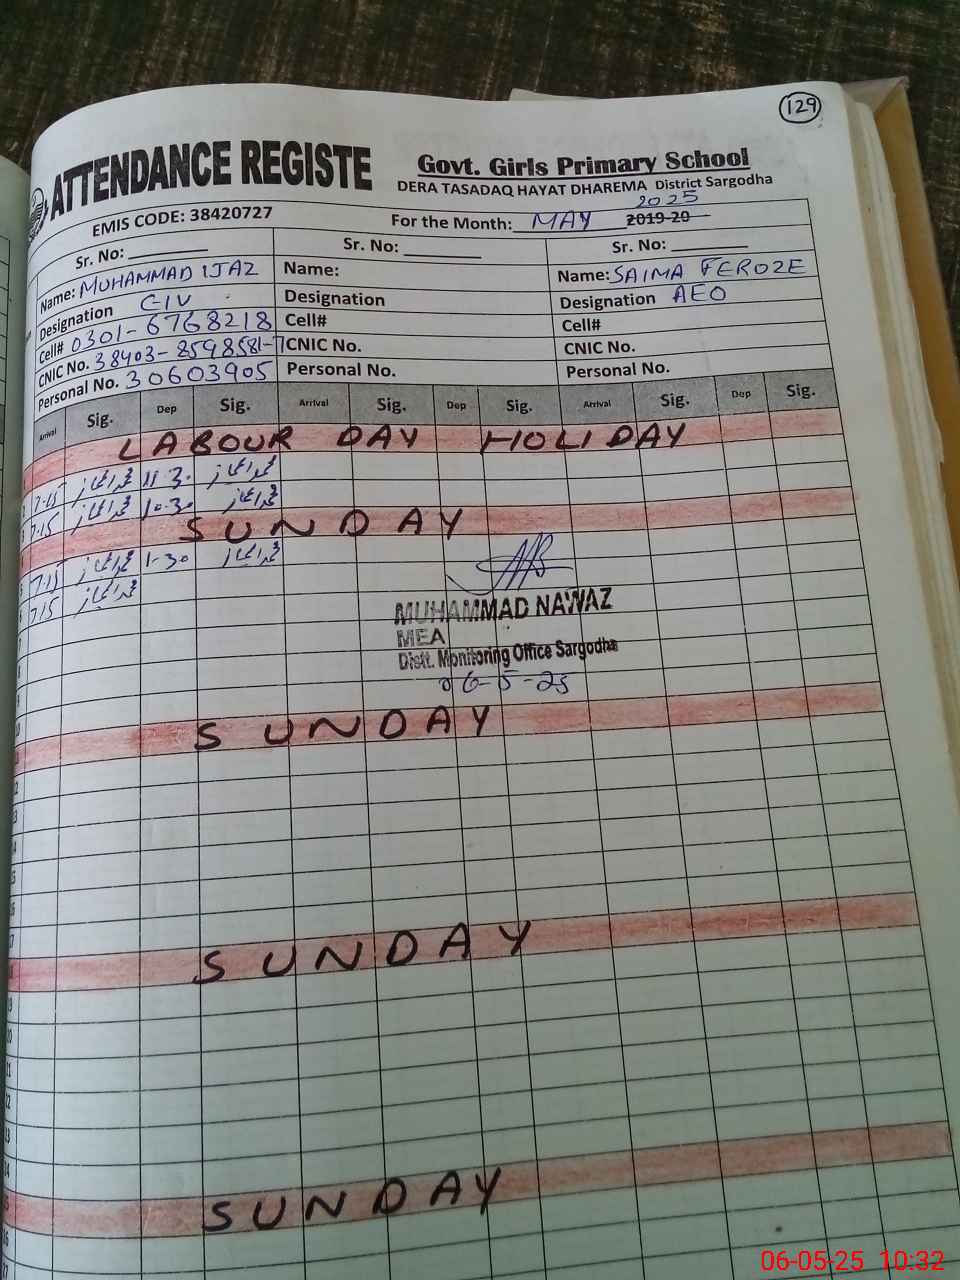 129
ATTENDANCE REGISTE
Govt. Girls Primary School
DERA TASADAQ HAYAT DHAREMA District Sargodha
EMIS CODE: 38420727
For the Month: MAY 2025 2019-20
Sr. No: Sr. No: Sr. No:
Name: MUHAMMAD IJAZ Name: Name: SAIMA FEROZE
Designation CIV Designation Designation AEO
Cell# 0301-6768218 Cell# Cell#
CNIC No. 38403-8598581-7 CNIC No. CNIC No.
Personal No. 30603905 Personal No. Personal No.
Arrival Sig. Dep Sig. Arrival Sig. Dep Sig. Arrival Sig. Dep Sig.
LABOUR DAY HOLIDAY
7-15 محمد اعجاز 11-30 محمد اعجاز
7-15 محمد اعجاز 10-30 محمد اعجاز
SUNDAY
7-15 محمد اعجاز 1-30 محمد اعجاز
7-15 محمد اعجاز
MUHAMMAD NAWAZ
MEA
Distt. Monitoring Office Sargodha
06-5-25
SUNDAY
SUNDAY
SUNDAY
06-05-25 10:32